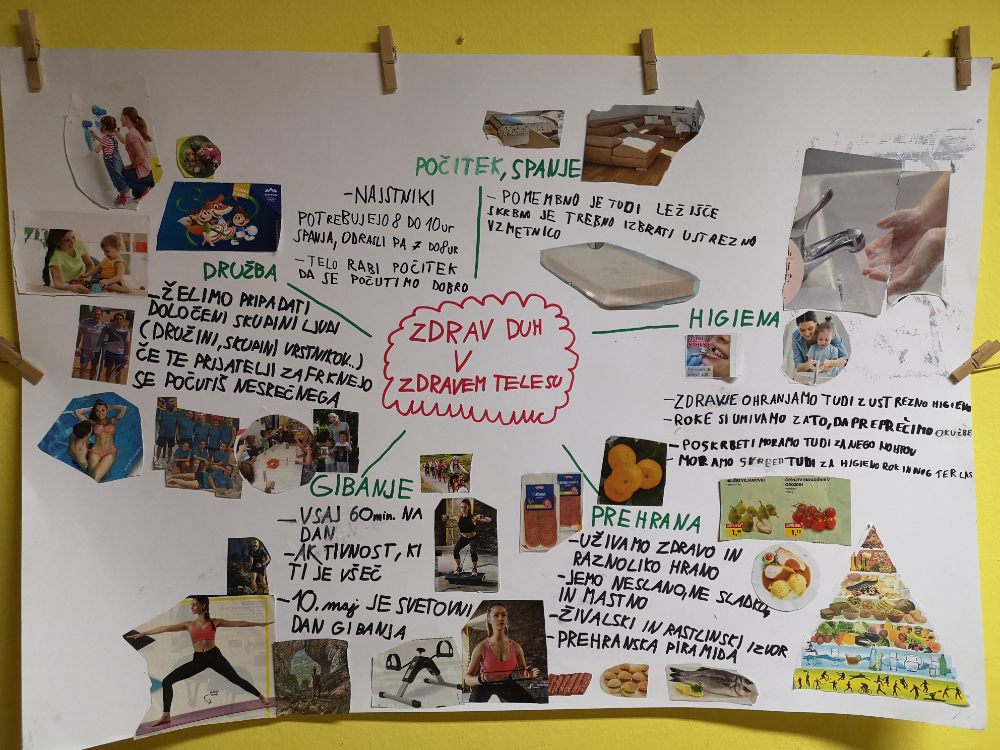 POČITEK, SPANJE
-NAJSTNIKI
POTREBUJEJO 8 DO 10ur
SPANJA, ODRASLI PA 7 do 8ur
-TELO RABI POČITEK
DA SE POČUTIMO DOBRO
- POMEMBNO JE TUDI LEŽIŠČE
SKRBNO JE TREBNO IZBRATI USTREZNO
VZMETNICO
DRUŽBA
-ŽELIMO PRIPADATI
DOLOČENI SKUPINI LJUDI
(DRUŽINI, SKUPINI VRSTNIKOV..)
ČE TE PRIJATELJI ZAFRKNEJO
SE POČUTIŠ NESREČNEGA
ZDRAV DUH
V
ZDRAVEM TELESU
HIGIENA
-ZDRAVJE OHRANJAMO TUDI Z USTREZNO HIGIENO
-ROKE SI UMIVAMO ZATO, DA PREPREČIMO OKUŽBE
-POSKRBETI MORAMO TUDI ZA NEGO NOHTOV
- MORAMO TUDI ZA HIGIENO ROK IN NOG TER LAS
GIBANJE
- VSAJ 60min. NA
DAN
-AKTIVNOST, KI
TI JE VŠEČ
-10. maj JE SVETOVNI
DAN GIBANJA
PREHRANA
-UŽIVAMO ZDRAVO IN
RAZNOLIKO HRANO
-JEMO NESLANO, NE SLADKO,
IN MASTNO
-ŽIVALSKI IN RASTLINSKI IZVOR
-PREHRANSKA PIRAMIDA